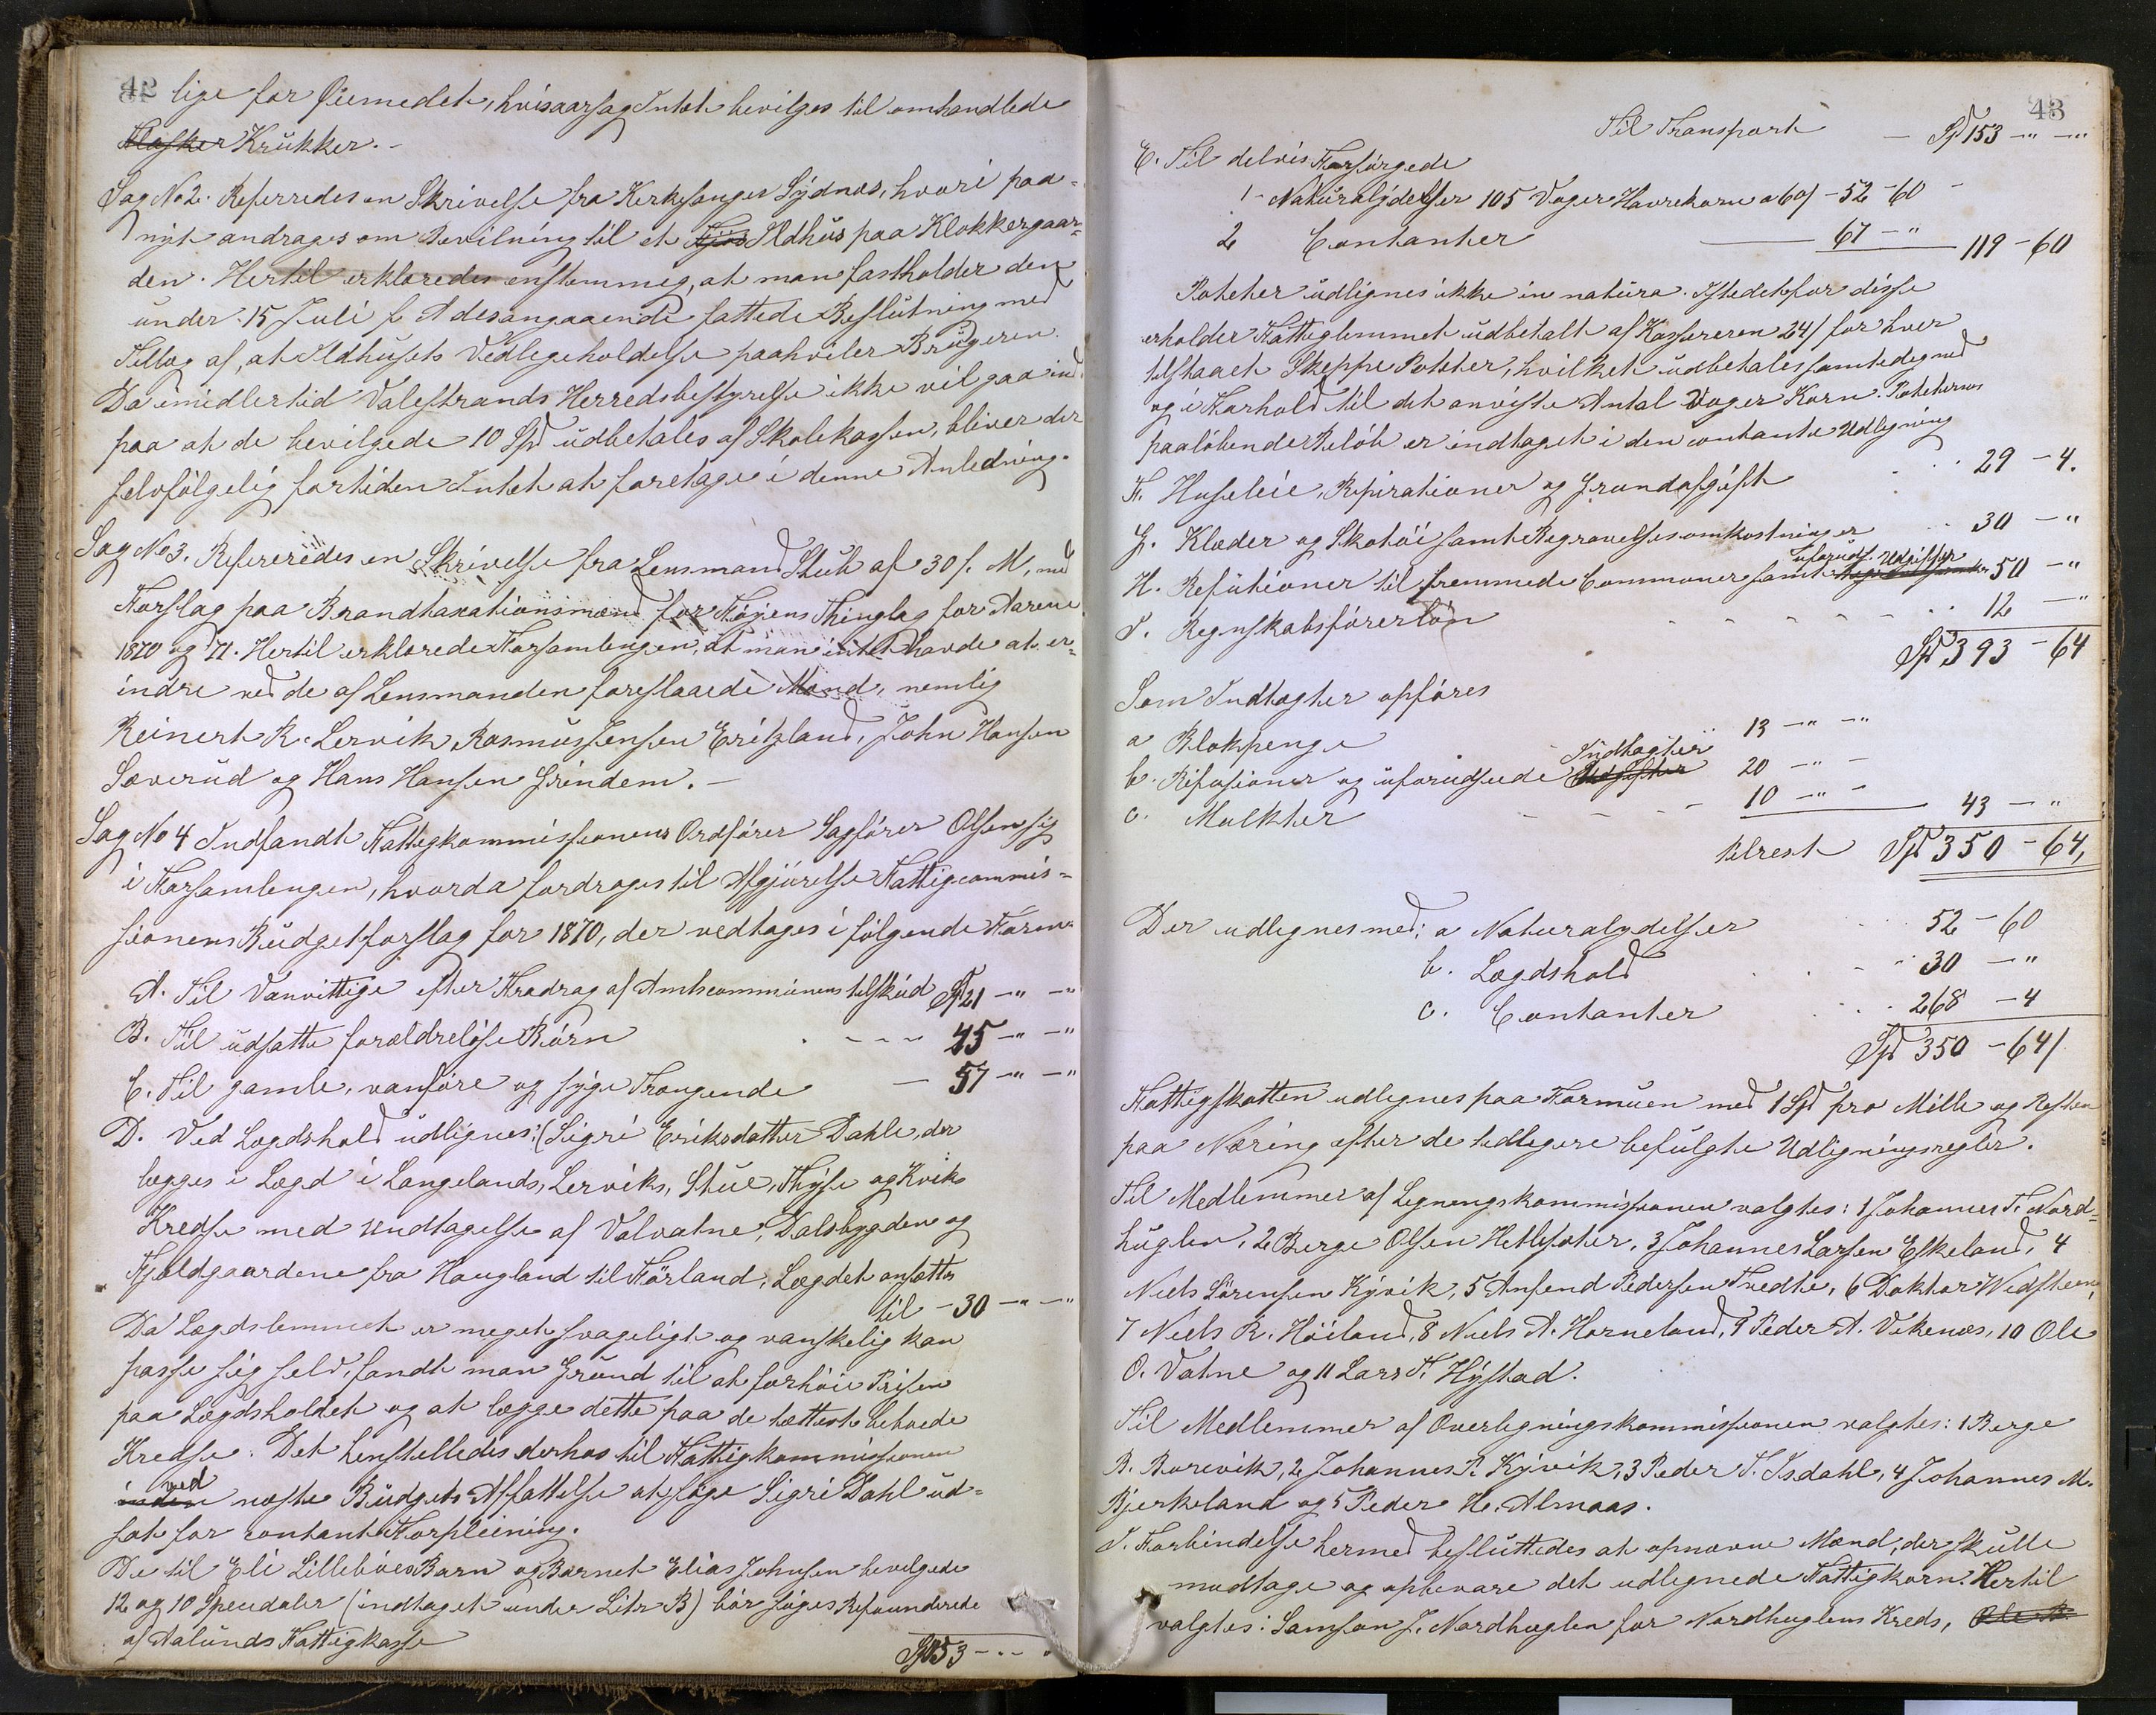 42
lige for Øiemedet, hvisaarsag Intet bevilges til omhandlede
Flasker Krukker.-
Sag No 2. Referredes en Skrivelse fra Kirkesanger Sydnæs, hvori paa-
nyt andrages om Bevilning til et Fjøs Ildhus paa Klokkergaar-
den. Hertil erklæredes enstemmig, at man fastholder den
under 15 Juli f. A desangaaende fattede Beslutning med
Tillæg af, at Ildhusets Vedligeholdelse paahviler Brugeren.
Da imidlertid Valestrands Herredsbestyrelse ikke vil gaa ind
paa at de bevilgede 10 Spd udbetales af Skolekassen, bliver der
selvfølgelig fortiden Intet at foretage i denne Anledning.
Sag No 3. Refereredes en Skrivelse fra Lensmand Stub af 30 f. M, med
Forslag paa Brandtaxationsmænd for Føyens Thinglag for Aarene
1870 og 71. Hertil erklærede Forsamlingen, at man intet havde at er-
indre ved de af Lensmanden foreslaaede Mænd, nemlig
Reinert R. Lervik, Rasmus Jensen Eritzland, John Hansen
Sæverud og Hans Hansen Grindem.-
Sag No 4 Indfandt Fattigkommissionens Ordfører Sagfører Olsen sig
i Forsamlingen, hvorda fordroges til Afgjørelse Fattigcommis-
sionens Budgetforslag for 1870, der vedtoges i følgende Form.
A. Til Vanvittige efter Fradrag af Amtscommunens tilskud Spd 21 -" -"
B. Til udsatte forældreløse Børn - - - 45 -" -"
C. Til gamle, vanføre og syge Trængende - 57 -" -"
D. Ved Lægdshold udlignes: (Sigri Eriksdatter Dahle, der
lægges i Lægd i Langelands, Lerviks, Stue, Thyse og Kviks
Kredse med Undtagelse af Valvatne, Dalsbygden og
Fjældgaardene fra Haugland til Førland. Lægdet ansættes
til - 30 -" -"
Da Lægdslemmet er meget svageligt og vanskelig kan
passe sig selv, fandt man Grund til at forhøie Prisen
paa Lægdsholdet og at lægge dette paa de tættest beboede
Kredse. Det henstilledes derhos til Fattigkommissionen
ved
inden næste Budgets Affattelse at søge Sigri Dahl ud-
sat for contant Forpleining.
De til Eli Lillebøes Barn og Barnet Elias Johnsen bevilgede
12 og 10 Speciedaler (indtaget under Litr B) bør søges Refunderede
af Aalunds Fattigkasse
Spd 153 - " -
43
Til Transport - Spd 153 -" -"
E. Til delvis Forsørgede
1 - Naturalydelser 105 Voger Havrekorn a 60 s - 52 - 60 -
2 Contanter - 67 - " 119 - 60
Poteter udlignes ikke in natura. Istedetfor disse
erholder Fattiglemmet udbetalt af Kassereren 24 s for hver
tilstaaet Skeppe Poteter, hvilket udbetales samtidig med
og i Forhold til det anviste Antal Voger Korn. Poteternes
paaløbende Beløb er indtaget i den contante Udligning
F. Husleie, Reparationer og Grundafgift 29 - 4.
G. Klæder og Skotøi samt Begravelsesomkostninger 30 - "
uforuds. Udgifter
H. Refutioner til fremmede Communer samt 50 - "
I. Regnskabsførerløn 12 - "
Spd 393 - 64
Som Indtægter opføres
a Blokpenge 13 -" -"
Indtægter
b. Refusioner og uforudseede Udgifter 20 -" -
c. Mulkter 10 -" - 43 - "
Belrest Spd 350 - 64,
Der udlignes med: a Naturalydelser 52 - 60
b. Lægdshold 30 - "
c. Contanter 268 - 4
Spd 350 - 64 s
Fattigskatten udlignes paa Formuen med 1 Spd pro Mille og Resten
paa Næring efter de tidligere befulgte Udligningsregler.
Til Medlemmer af Ligningskommissionen valgtes: 1 Johannes T. Nord-
huglen, 2 Berge Olsen Hetlesæter, 3 Johannes Larsen Eskeland, 4
Niels Sørensen Kyvik, 5 Anfind Pedersen Tvedte, 6 Doktor Wedsteen,
7 Niels R. Høiland, 8 Niels A. Horneland, 9 Peder A. Vikenæs, 10 Ole
O. Vatne og 11 Lars T. Hystad.
Til Medlemmer af Overligningskommissionen valgtes: 1 Berge
B. Borevik, 2 Johannes P. Kyvik, 3 Peder T. Isdahl, 4 Johannes M.
Bjerkeland og 5 Peder H. Almaas.
I Forbindelse hermed besluttedes at opnævne Mænd, der skulle
modtage og opbevare det udlignede Fattigkorn. Hertil
valgtes: Samson J. Nordhuglen for Nordhuglens Kreds, Ole B.